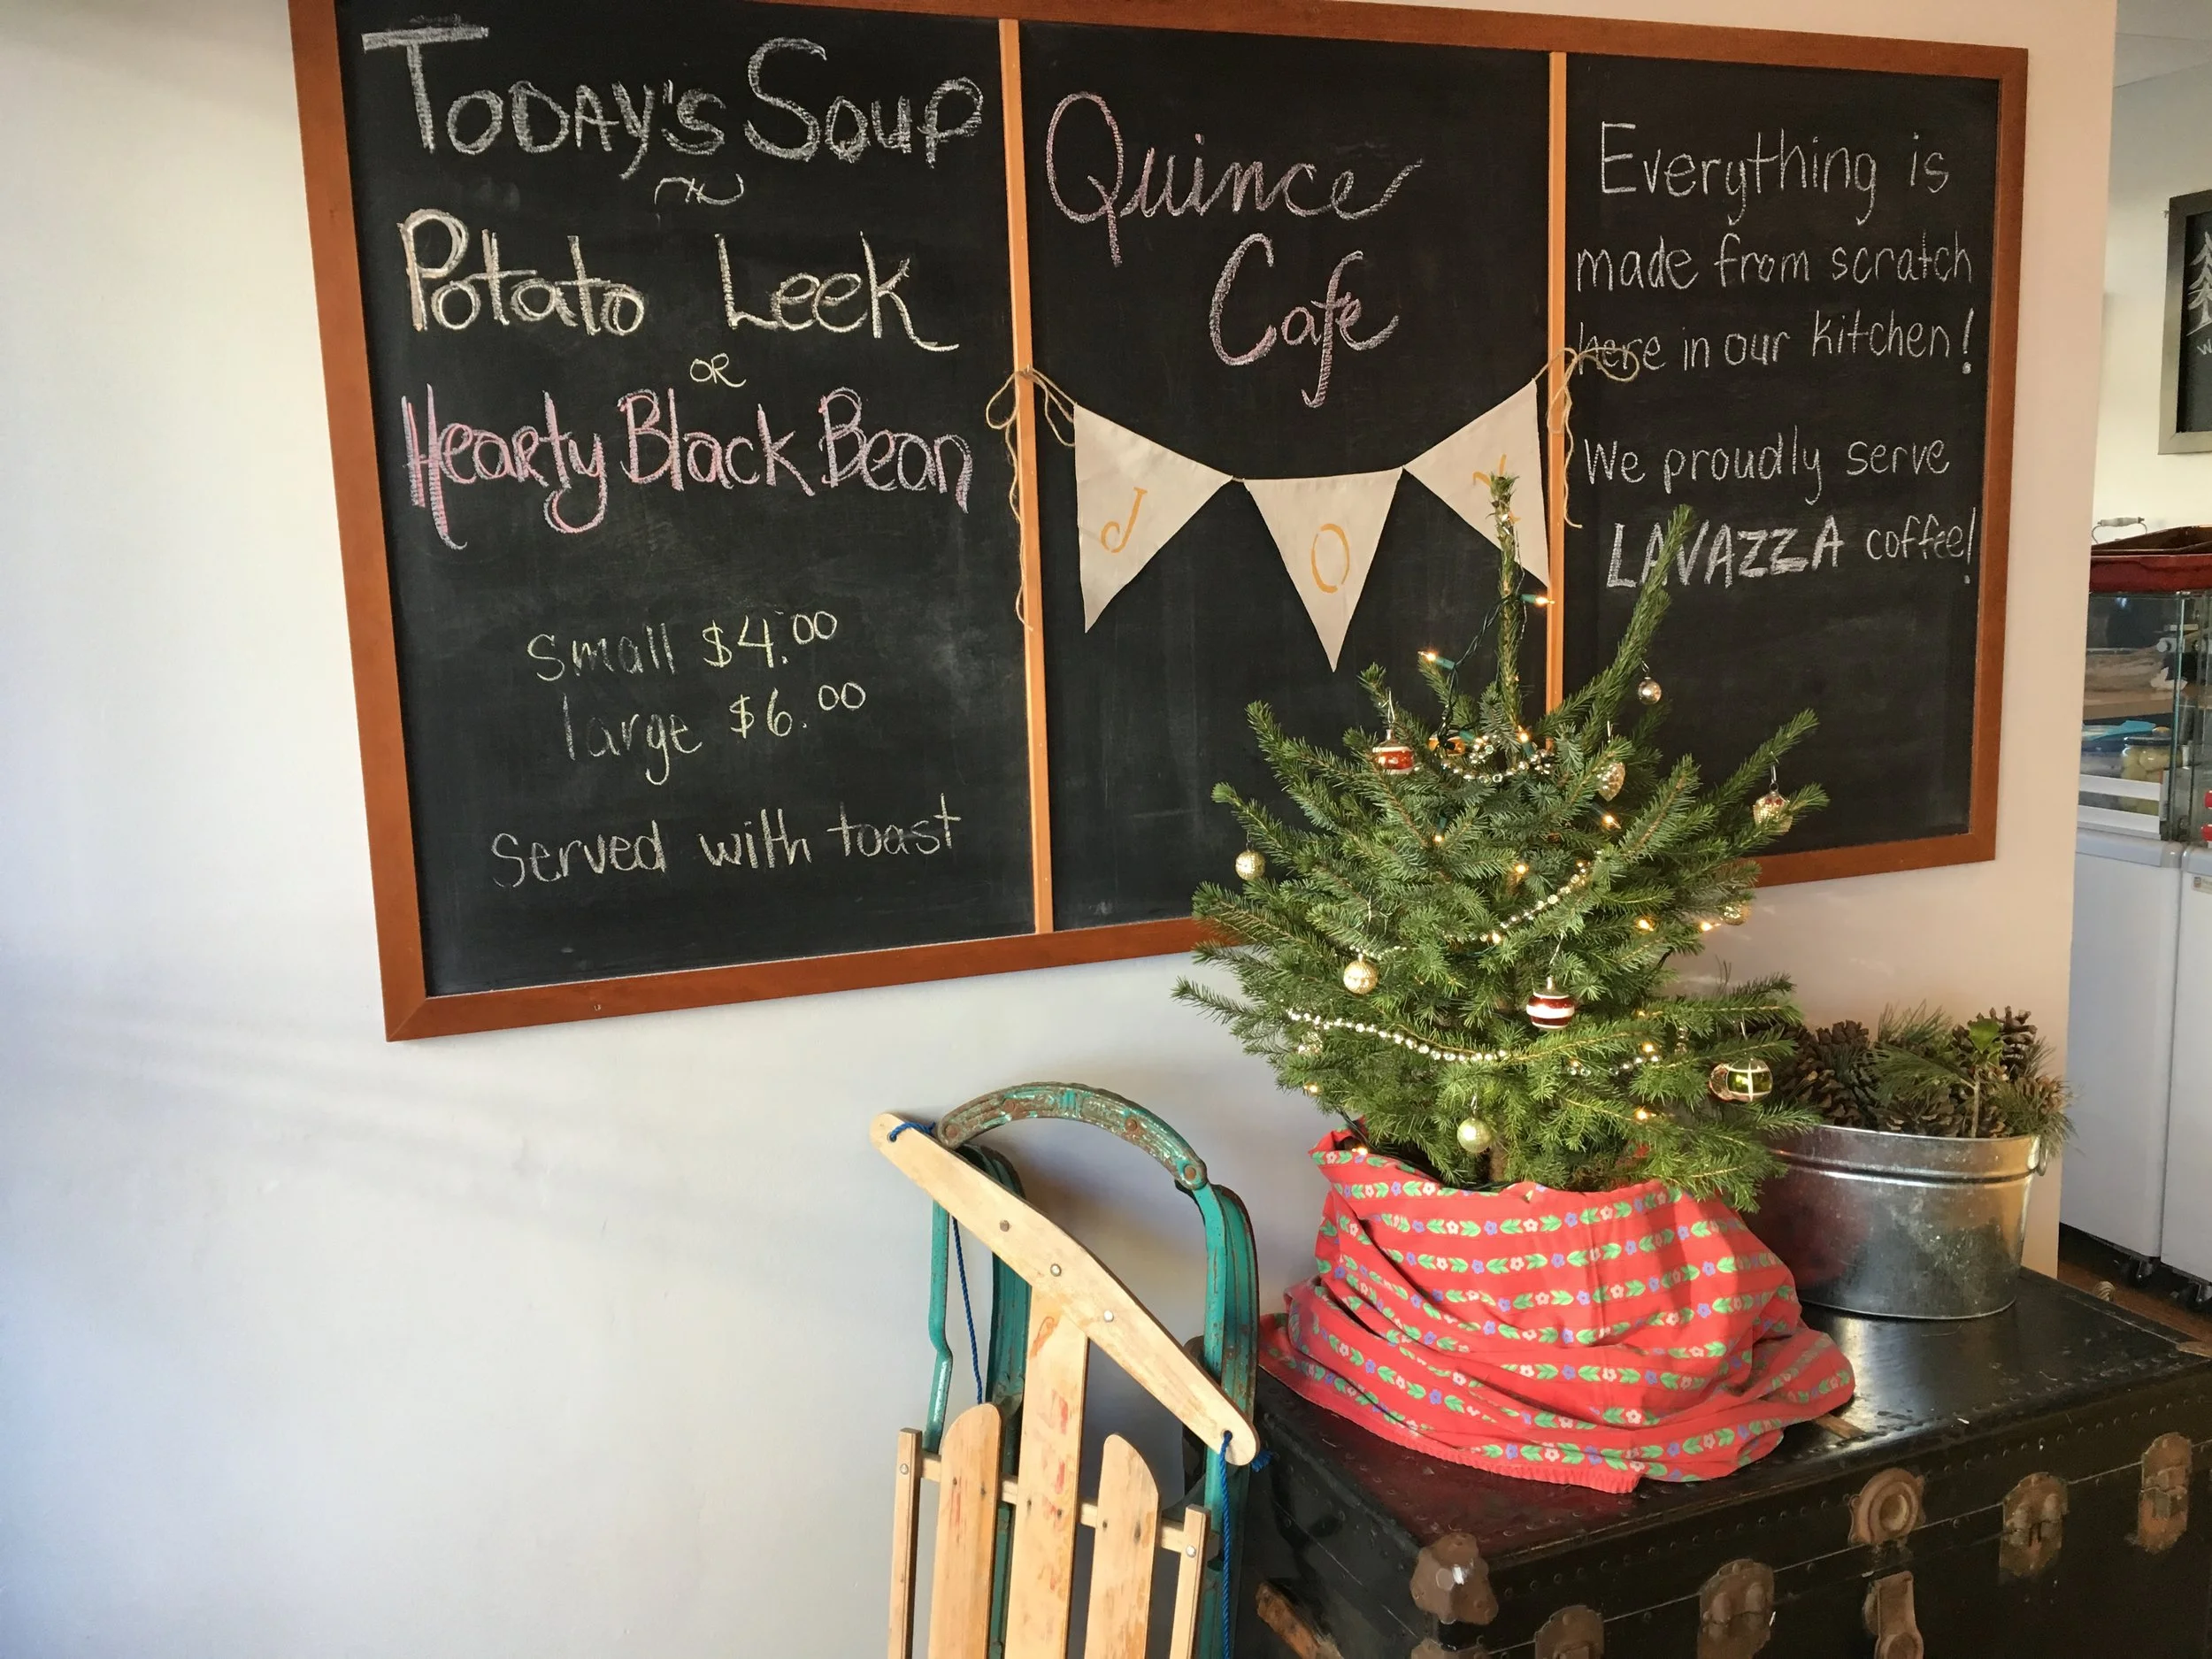 TODAY'S SOUP
Potato Leek
OR
Hearty Black Bean
Small $4.00
large $6.00
Served with toast
Quince
Cafe
J O Y
Everything is
made from scratch
here in our kitchen!
We proudly serve
LAVAZZA coffee!